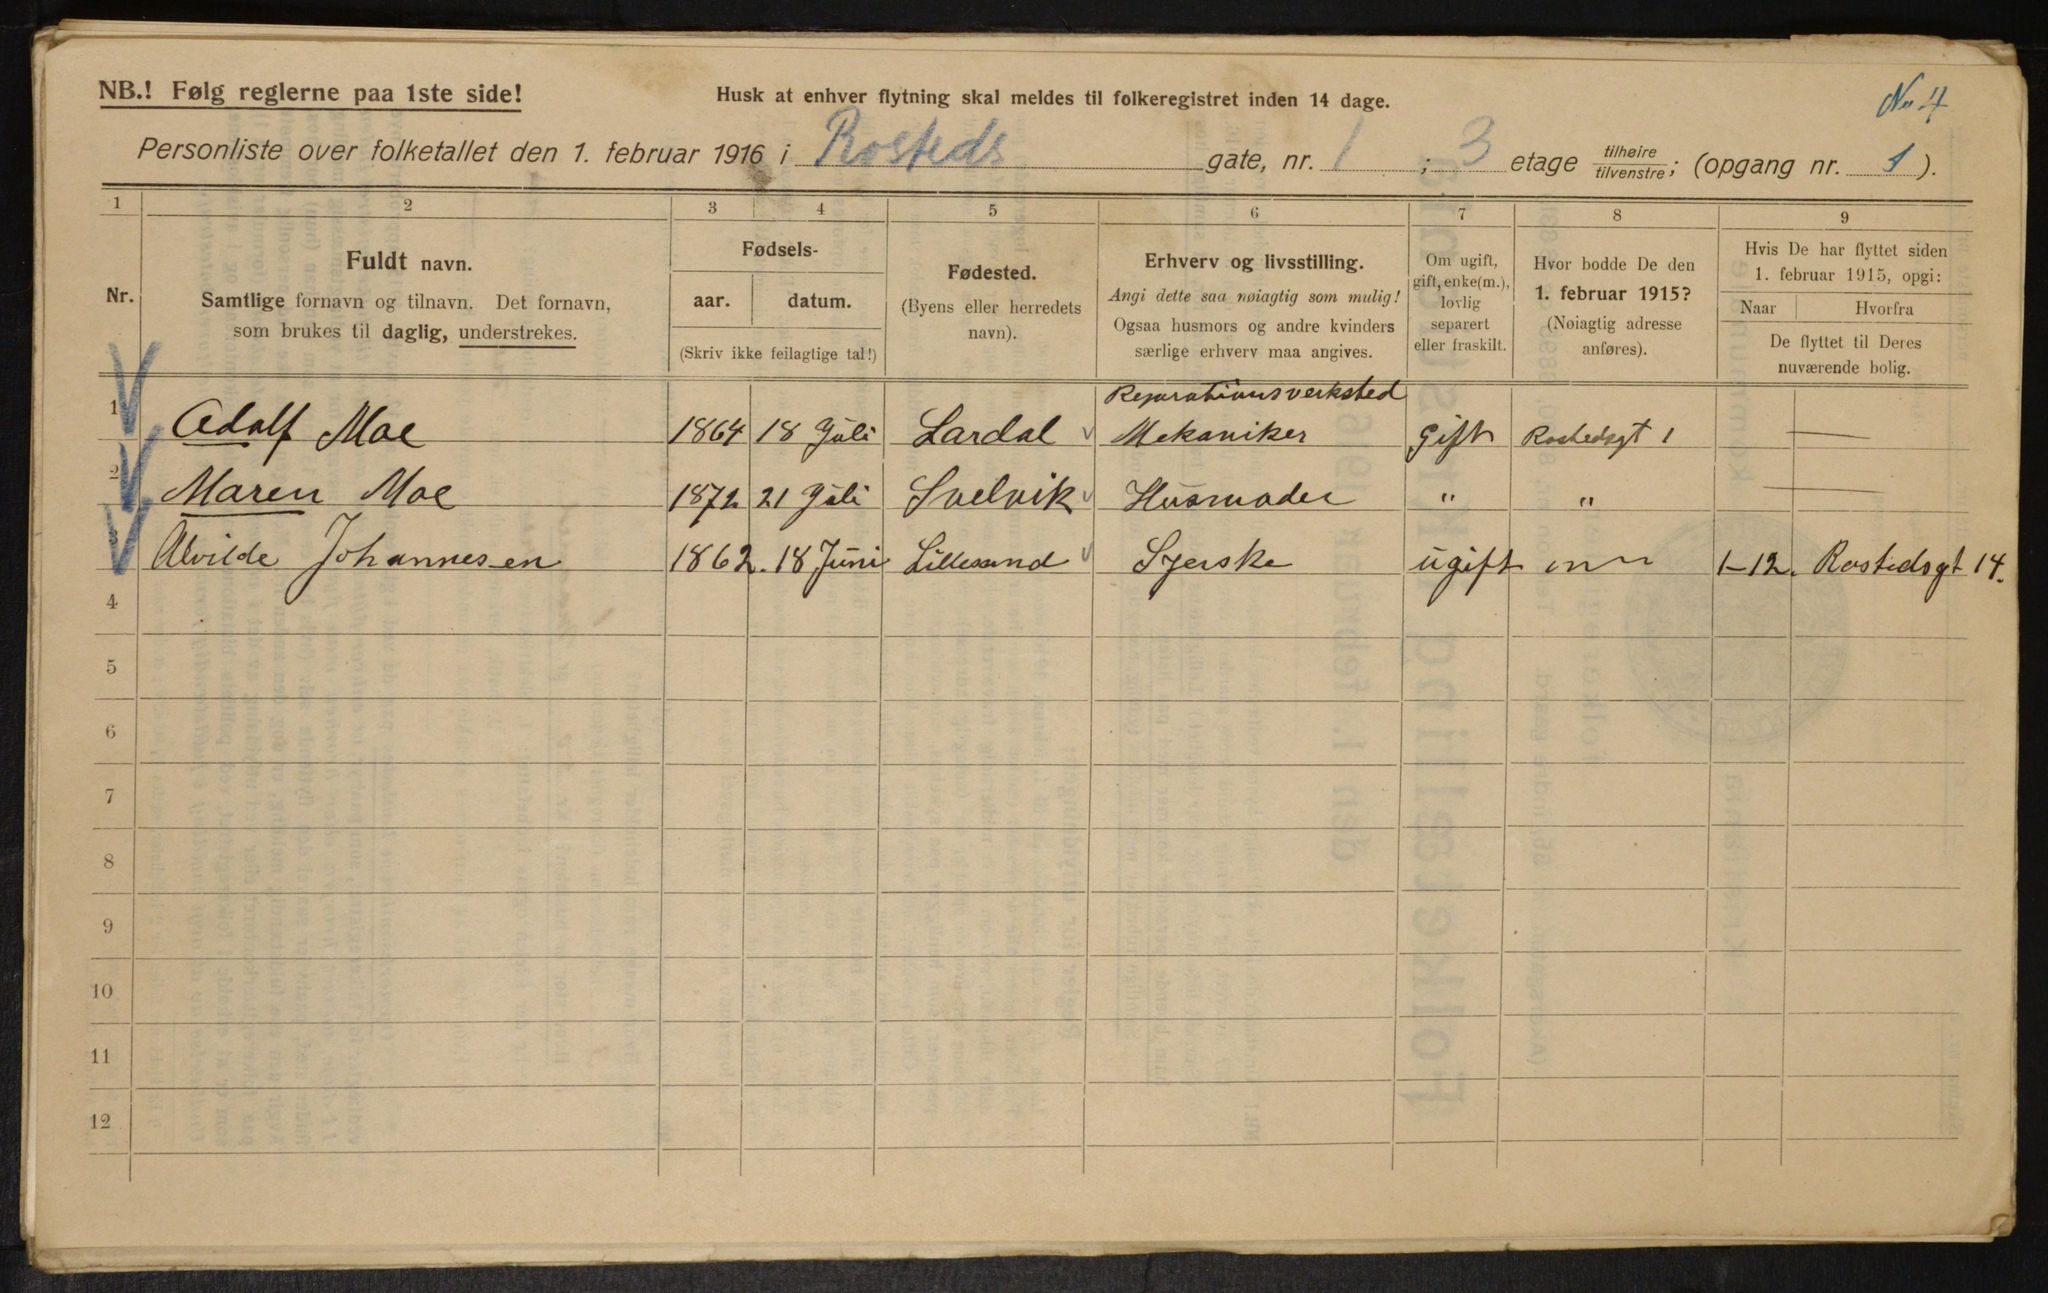 No 4
NB.! Følg reglerne paa 1ste side!
Husk at enhver flytning skal meldes til folkeregistret inden 14 dage.
Personliste over folketallet den 1. februar 1916 i Rosteds gate, nr. 1; 3 etage tilhøire/tilvenstre; (opgang nr. 1).
1 2 3 4 5 6 7 8 9
Nr.
Fuldt navn.
Samtlige fornavn og tilnavn. Det fornavn,
som brukes til daglig, understrekes.
Fødsels-
aar. datum.
(Skriv ikke feilagtige tal!)
Fødested.
(Byens eller herredets
navn).
Erhverv og livsstilling.
Angi dette saa nøiagtig som mulig!
Ogsaa husmors og andre kvinders
særlige erhverv maa angives.
Om ugift,
gift, enke(m.),
lovlig
separert
eller fraskilt.
Hvor bodde De den
1. februar 1915?
(Nøiagtig adresse
anføres).
Hvis De har flyttet siden
1. februar 1915, opgi:
Naar Hvorfra
De flyttet til Deres
nuværende bolig.
Reparationsverksted
1 Adolf Moe 1864 18 Juli Lardal Mekaniker Gift Rostedsgt 1 —
2 Maren Moe 1872 21 Juli Svelvik Husmoder " " —
3 Alvilde Johannesen 1862. 18 Juni Lillesand Syerske ugift 1-12. Rostedsgt 14.
4
5
6
7
8
9
10
11
12